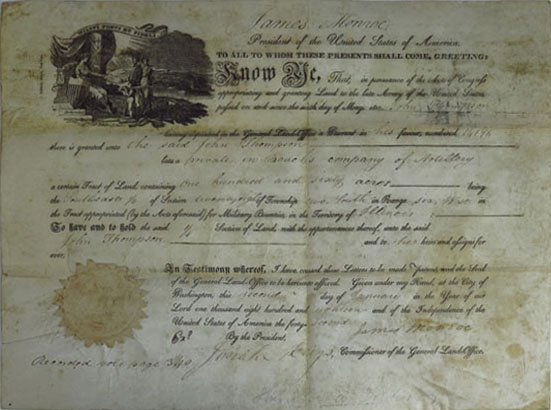 James Monroe,
President of the United States of America.
TO ALL TO WHOM THESE PRESENTS SHALL COME, GREETING:
Know Ye, That, in pursuance of the Acts of Congress
appropriating and granting Land to the late Army of the United States
passed on and since the sixth day of May, 1812, John Thompson
having deposited in the General Land-Office a Warrant in his favour, numbered
there is granted unto the said John Thompson
late a private in company of Artillery
a certain Tract of Land, containing One hundred and sixty acres being
the 1/4 of Section of Township two South in Range six West in
the Tract appropriated (by the Acts aforesaid) for Military Bounties, in the Territory of Illinois
To have and to hold the said 1/4 Section of Land, with the appurtenances thereof, unto the said
John Thompson and to his heirs and assigns for
ever.
In Testimony whereof, I have caused these Letters to be made Patent, and the Seal
of the General Land-Office to be hereunto affixed. Given under my Hand, at the City of
Washington, this second day of January in the Year of our
Lord one thousand eight hundred and eighteen and of the Independence of the
United States of America the forty-second
By the President, James Monroe
Josiah Meigs, Commissioner of the General Land-Office.
Recorded vol. page 340